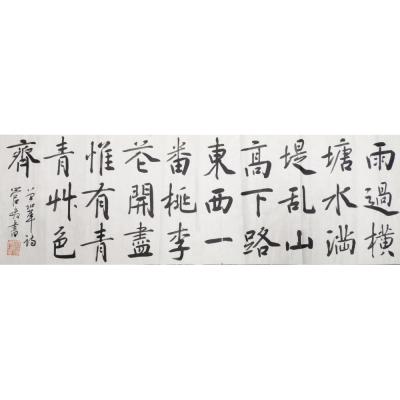 雨過橫
塘水滿
堤乱山
高下路
東西一
番桃李
花開盡
惟有青
青艸色
齊
曾鞏詩
管峻書